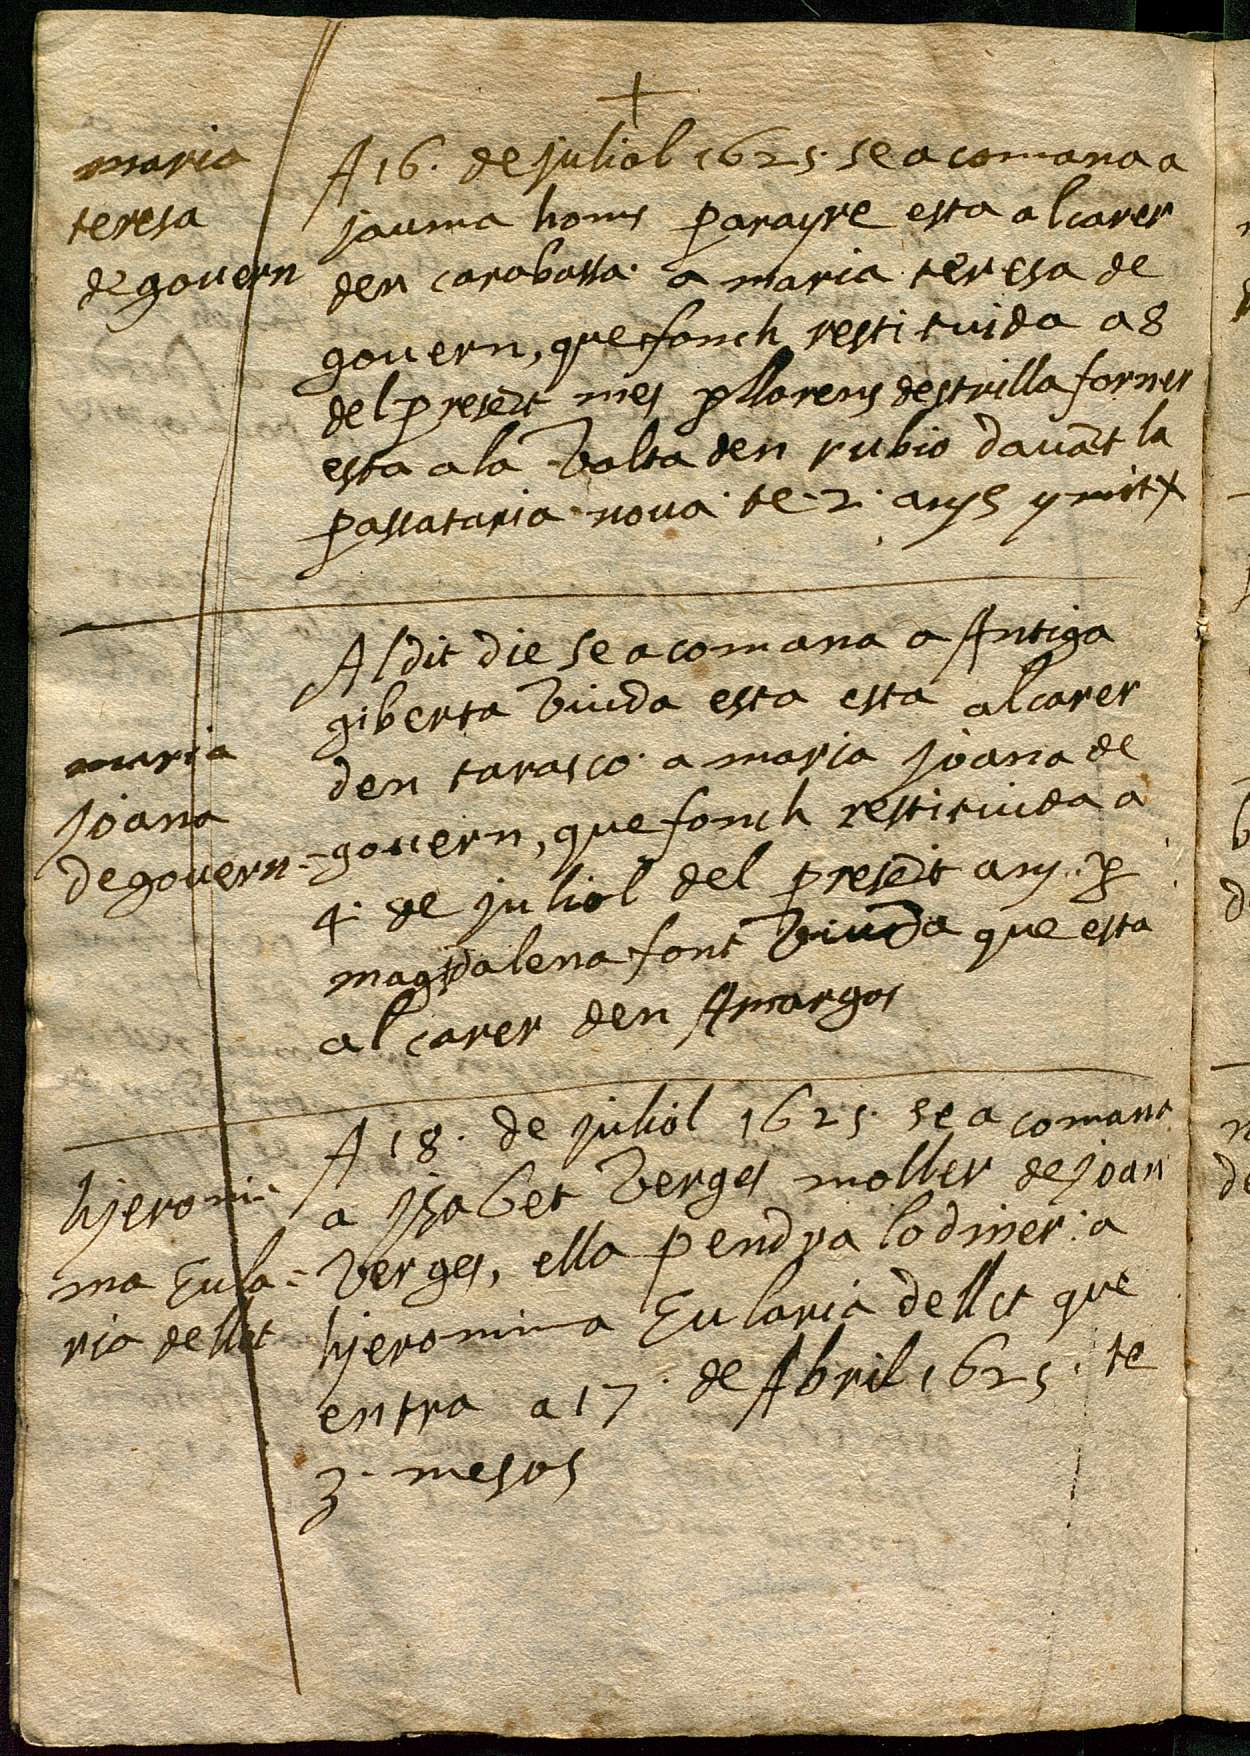 +
maria
teresa
de govern
A 16. de juliol 1625. se acomana a
jauma homs parayre esta al carer
den carabassa. a maria teresa de
govern, que fonch restituida a 8
del preset mes p llorens destrilla forner
esta a la volta den rubio davat la
passataria nova. te. 2. anys y mitx
maria
joana
de govern -
Al dit die se acomana a Antiga
giberta viuda esta esta al carer
den tarasco. a maria joana de
govern, que fonch restituida a
4. de juliol del preset any. p
magdalena font viuda que esta
al carer den Amargos
hjeroni-
ma Eula-
ria de llet
A 18. de juliol 1625. se acomana
a ysabet verges moller de joan
verges, ella pendra lo diner. a
hjeronima Eularia de llet que
entra a 17. de Abril 1625. te
3. mesos